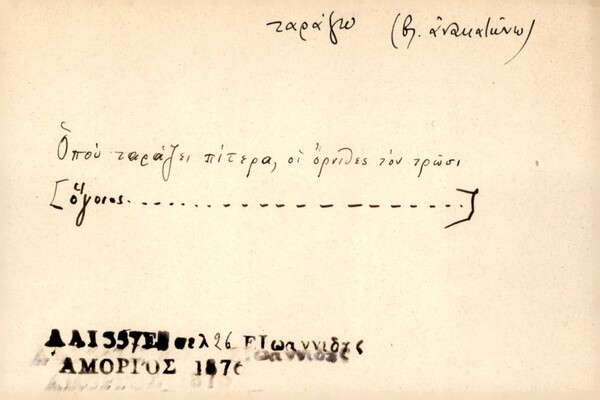 ταράζω (βλ. ἀνακατώνω)
Ὁπού ταράζει πίτερα, οἱ ὄρνιθες τὸν τρῶσι
[ὅγοιος. . . . . . . . . . . . . . . . . . . . . . . . .]
ΛΑΙ 557Ε σελ 26 Ε Ιωαννιδης
ΑΜΟΡΓΟΣ 1876